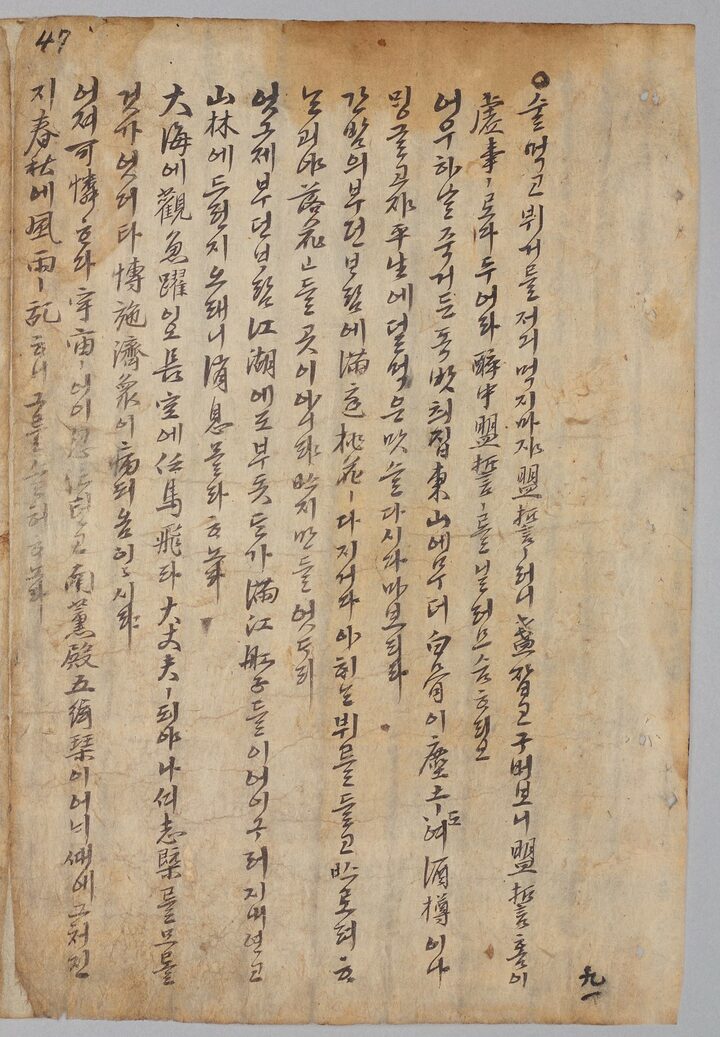 47
○술먹고 뷔거를 저긔 먹지마쟈 盟誓ㅣ러니 盞잡고 구버보니 盟誓홈이
虛事ㅣ로다 두어라 醉中盟誓ㅣ를 닐러 므슴 ᄒᆞ리오
어우하 ᄂᆞᆯ 죽거든 독밧희집 東山에 무더 白骨이 塵土ㅣ되여 酒樽이나
밍글고쟈 平生에 덜먹은 맛슬 다시 다마 보리라
간밤의 부던 ᄇᆞ람에 滿庭桃花ㅣ 다지거다 아ᄒᆡᄂᆞᆫ 뷔를 들고 ᄡᅳ로려 ᄒᆞ
ᄂᆞᆫ괴야 落花ㄴ들 곳이 아니랴 ᄡᅳ지만들 엇더리
엇그제 부던 ᄇᆞ람 江湖에도 부돗던가 滿江舡子들이 어이구러 지내연고
山林에 드런지 오래니 消息 몰라 ᄒᆞ노라
大海에 觀魚躍이오 長空에 任鳥飛라 大丈夫ㅣ 되야나셔 志槩를 모를
것가 엇더타 博施濟衆이 病되옴이 이시랴
어져 可憐ᄒᆞ다 宇宙ㅣ 어이 忽忙턴고 南薰殿 五絃琴이 어ᄂᆡ ᄯᅢ에 그처진
지 春秋에 風雨ㅣ 亂ᄒᆞ니 그를 슬허 ᄒᆞ노라
九一